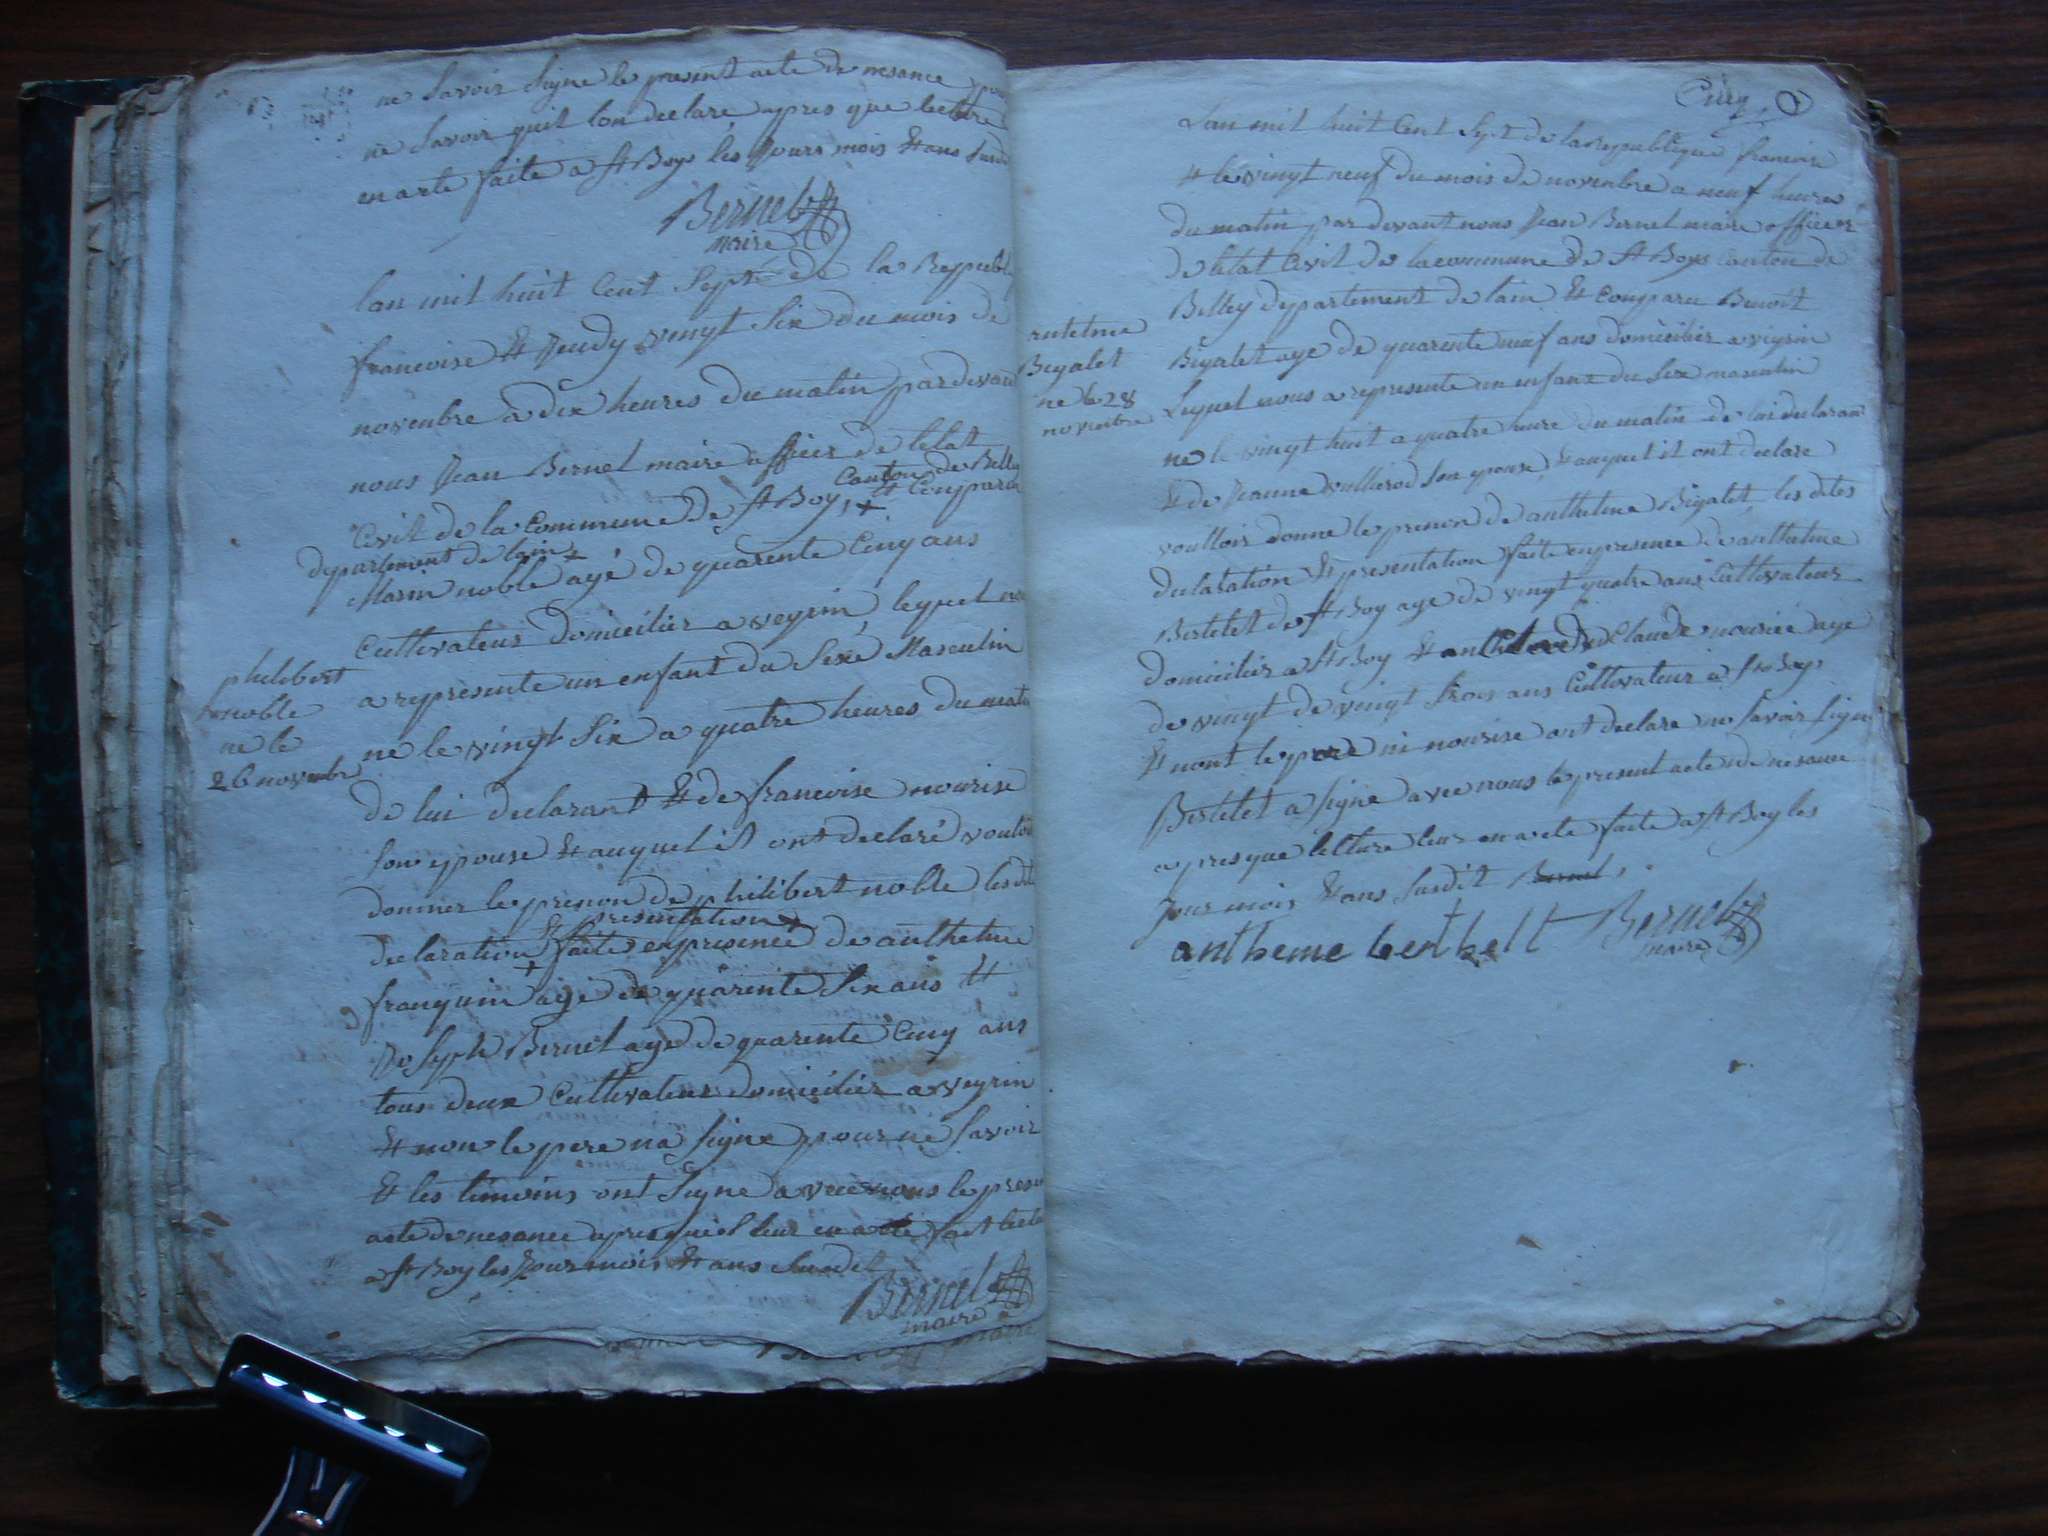 ne Savoir Signe le present acte de nesance
ne Savoir quil lon declare apres que lecture
en a ete faite a St Boys les Jours mois & ans Susd
Bernet
maire
lan mil huit Cent Sept de la Republ
francoise & Jeudy vingt Six du mois de
novembre a dix heures du matin par devant
nous Jean Bernet maire officier de letat
Civil de la Commune de St Boy, Canton de Belley & Comparu
departement de lain
Marin noble agé de quarente Cinq ans
Cultivateur domicilier a veyrin lequel nou
a representé un enfant du Sexe Masculin
philibert
noble
ne le
26 novembre
ne le vingt Six a quatre heures du matin
de lui declarant & de francoise nourise
Son epouse & auquel il ont declaré vouloir
donner le prenon de philibert noble les dit
declaration & presentation faite en presence de anthelme
franquin agé de quarente Six ans &
Joseph Bernet agé de quarente Cinq ans
tous deux Cultivateur domicilier a veyrin
& non le pere na Signe pour ne Savoir
& les temoins ont Signe avec nous le presen
acte de nesance apres quil leur en a ete fait lectu
a St Boy les Jour mois & ans Susdit
Bernet
maire
Cinq
Lan mil huit Cent Sept de la republique francoise
& le vingt neuf du mois de novembre a neuf heures
du matin par devant nous Jean Bernet maire officier
de letat Civil de la commune de St Boys canton de
Belley departement de lain & Comparu Benoit
antelme
Bigalet
ne le 28
novembre
Bigalet age de quarente neuf ans domicilier a veyrin
Lequel nous a representé un enfant du Sexe masculin
ne le vingt huit a quatre heure du matin de lui declarant
& de Jeanne vullierod Son epouse & auquel il ont declare
voulloir donne le prenon de anthelme Bigalet les dites
declaration & presentation faite en presence de anthelme
Bertelet de St Boy age de vingt quatre ans Cultivateur
domicilier a St Boy & Claude nourice age
de vingt de vingt trois ans Cultivateur a St Boys
& nont le pere ni nourise ont declare ne Savoir Signe
Bertelet a Signe avec nous le present acte de nesance
apres que lecture leur en a ete faite a St Boy les
Jour mois & ans Susdit Bernet
antheme berthelt Bernet
maire